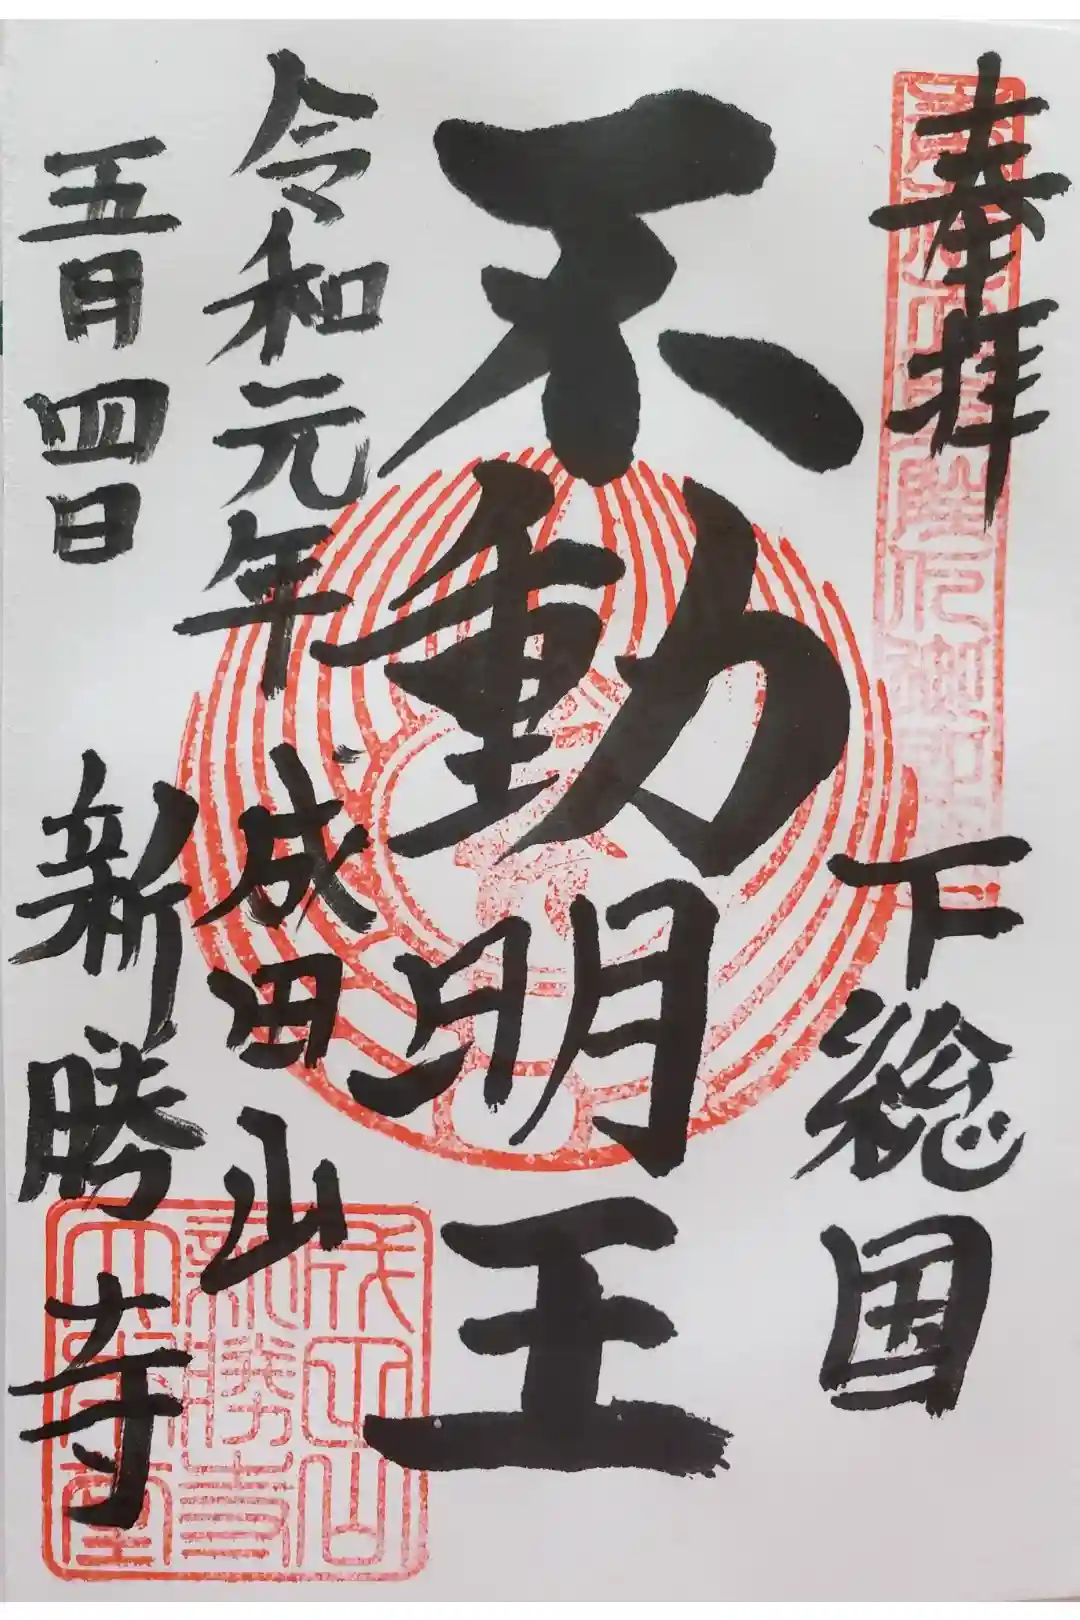 奉拝
下総国
不動明王
令和元年
五月四日
成田山
新勝寺
成田山
新勝寺